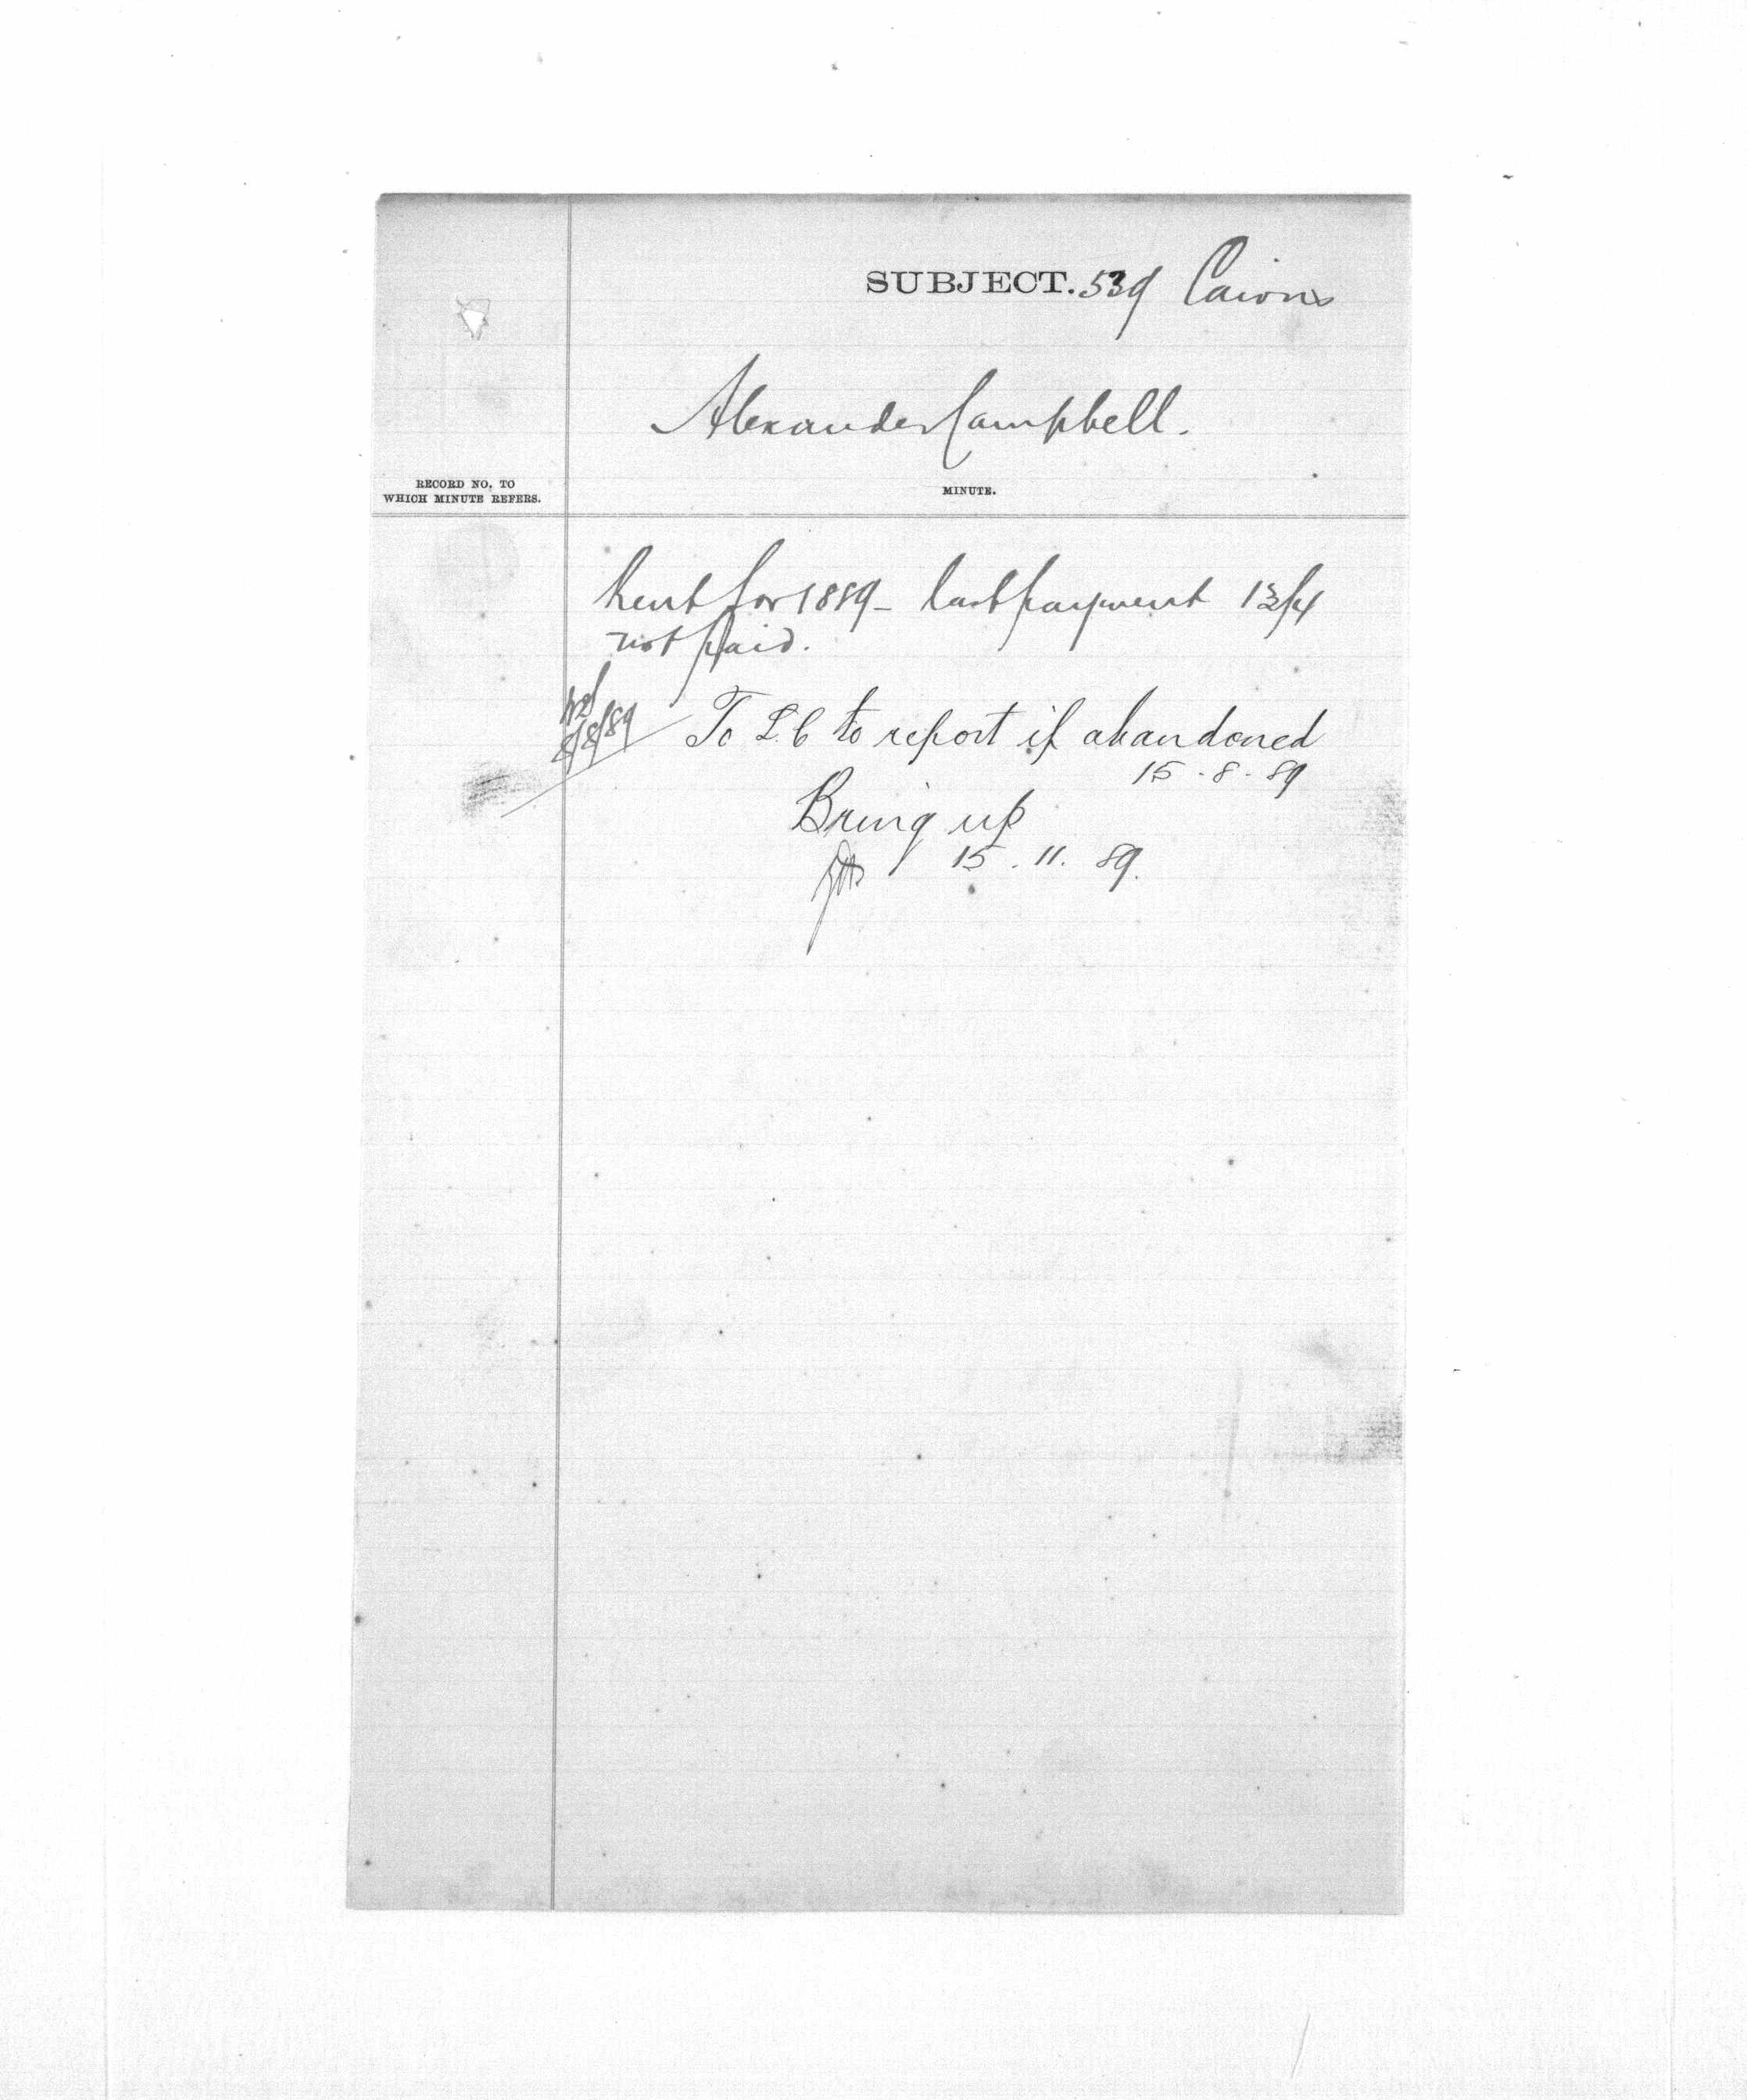 SUBJECT. 539 Cairns
Alexander Campbell.
RECORD NO. TO
WHICH MINUTE REFERS.
MINUTE.
Rent for 1889 - last payment 13/4
not paid.
8/8/89
To L.C to report if abandoned
15 - 8 - 89
Bring up
15 . 11 . 89.